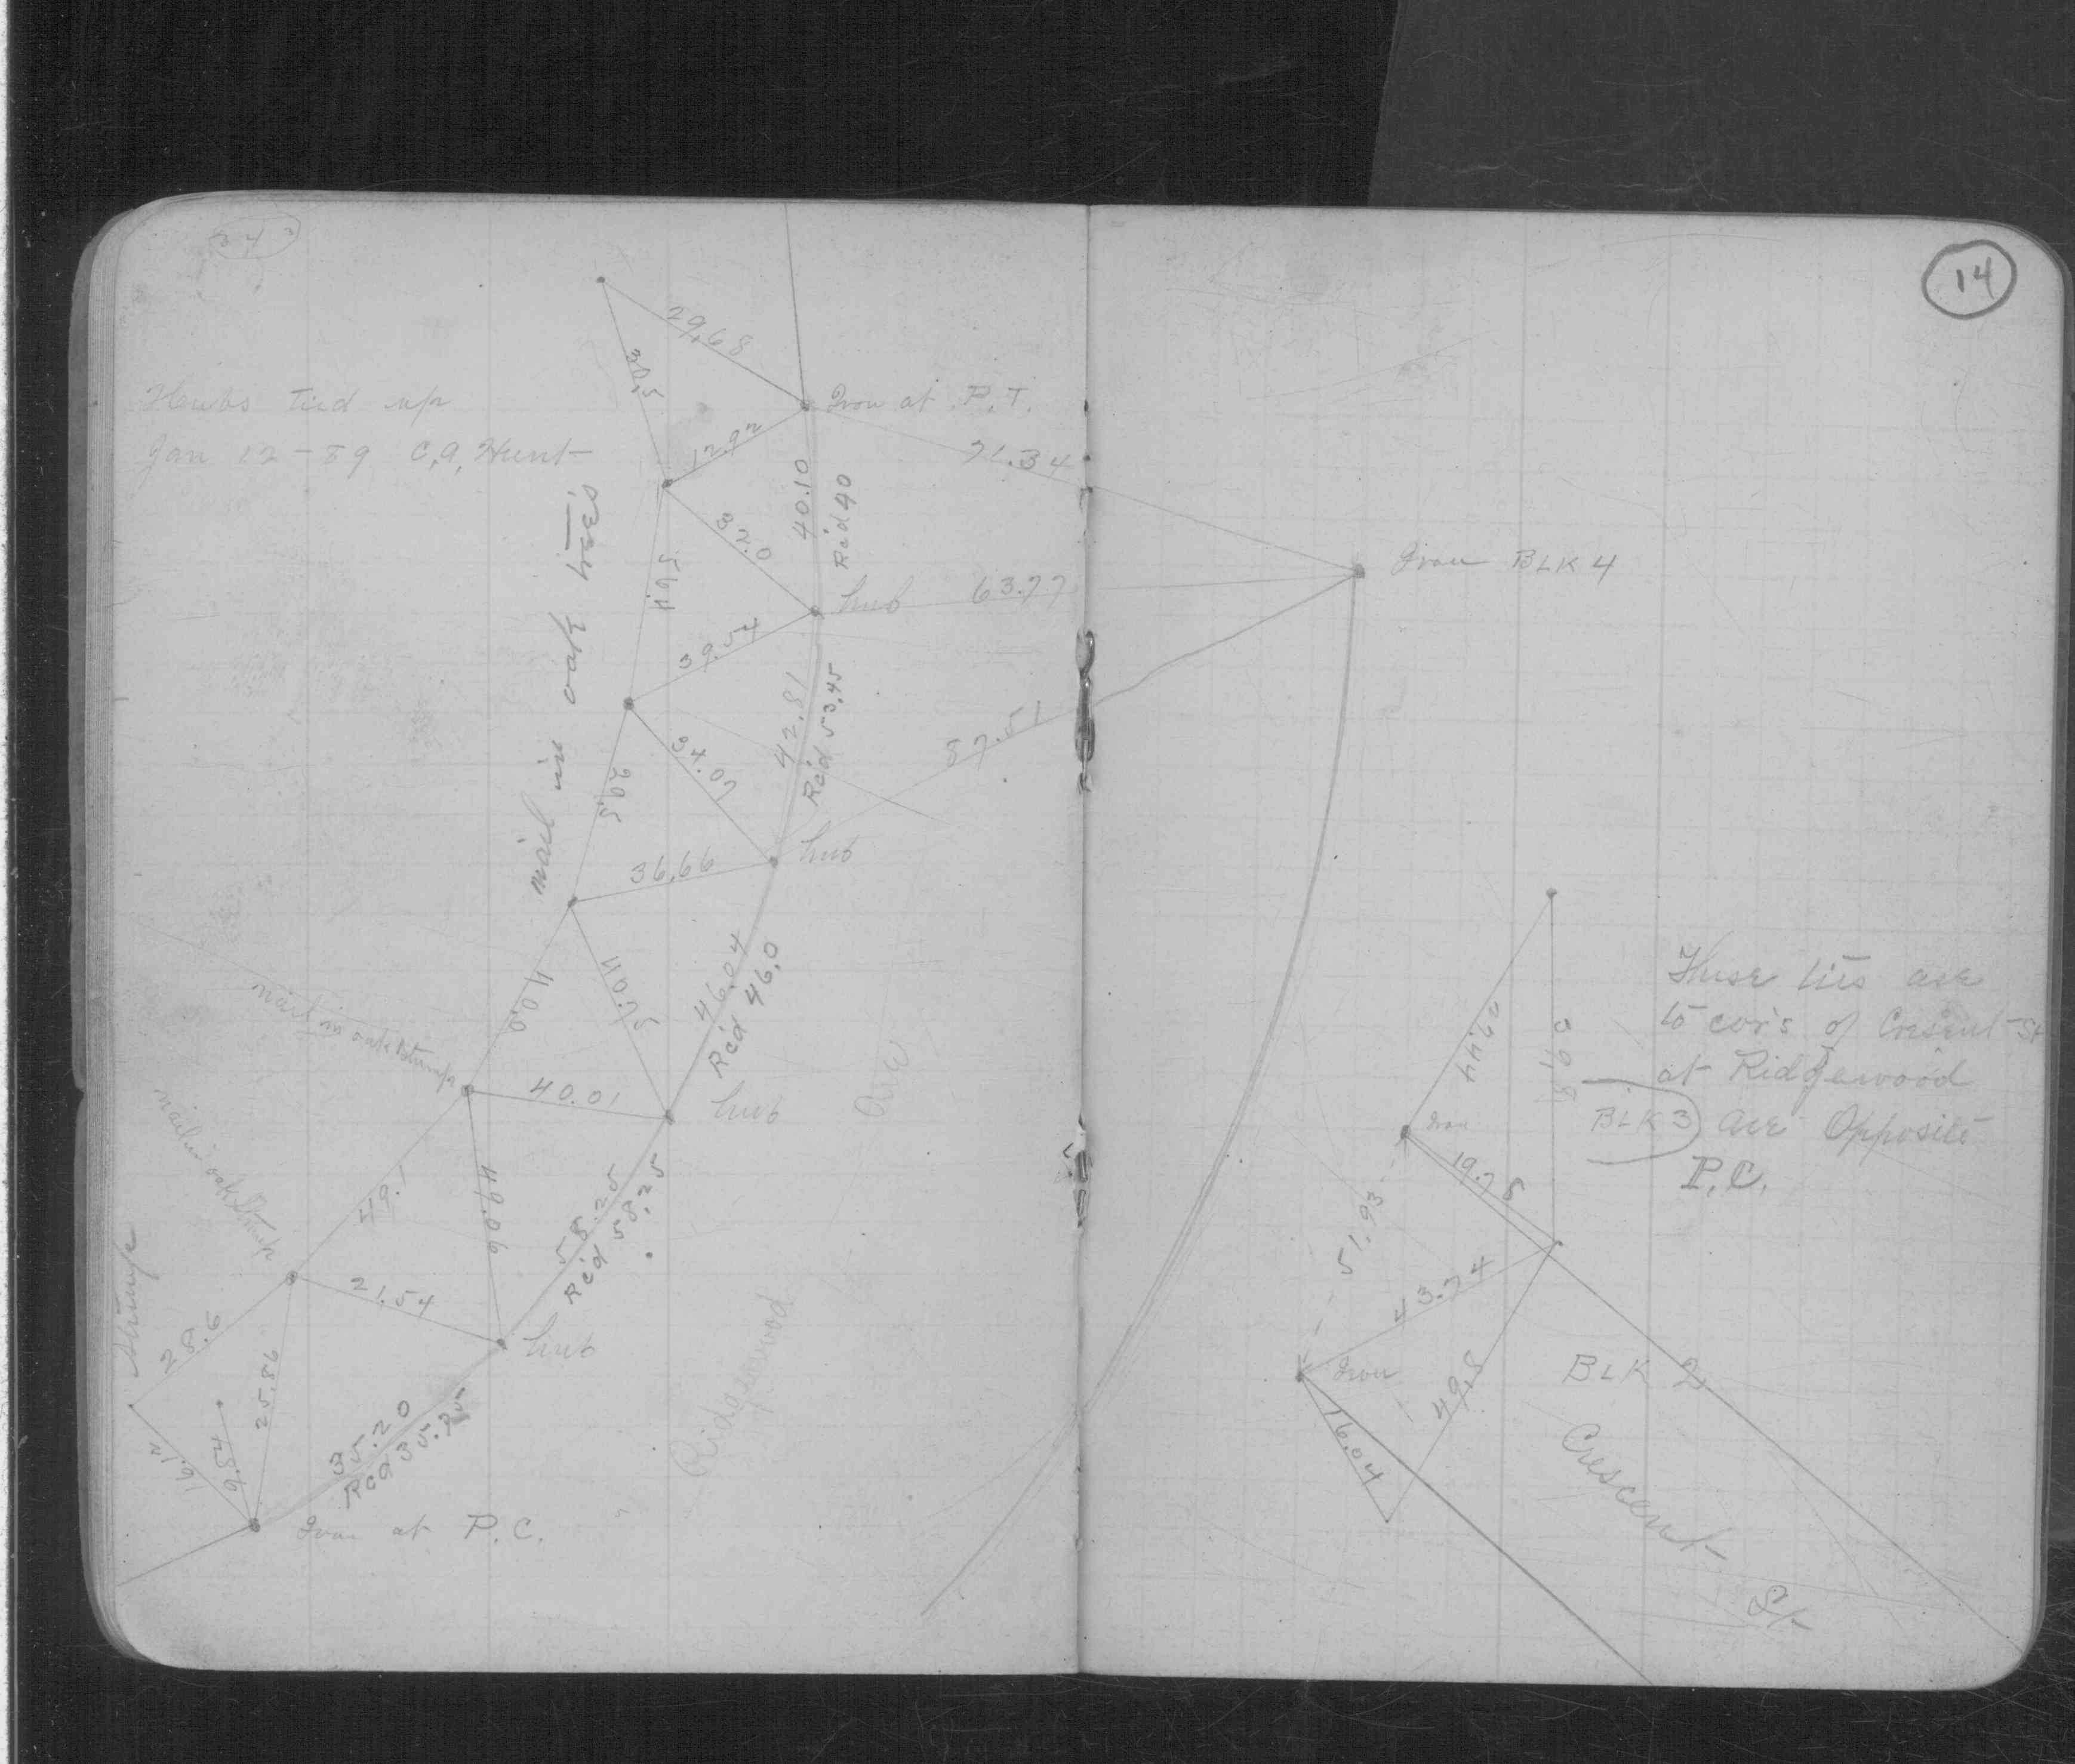 14
Hewbs tied up
Jan 12 - 89 C.A. Hunt
29.68
30.5
Iron at P.T.
12.92
71.34
40.10
Rćd 40
32.0
56.4
hub
63.77
Iron BLK 4
39.54
nail in oak trees
42.81
Rćd 53.45
34.07
50.5
57.51
hub
36.66
46.04
Rćd 46.0
40.0
nail in oak stump
40.01
hub
Ave
29.44
30.8
These ties are
to cor's of Cresent St
at Ridgewood
BLK 3 are Opposite
P.C.
Iron
19.78
51.93
43.74
nail in oak stump
49.1
40.06
58.25
Rćd 58.25
Stump
28.6
21.54
hub
25.86
Ridgewood
Iron
BLK 2
49.8
16.04
Crescent St
16.12
9.54
35.20
Rćd 35.25
Iron at P.C.